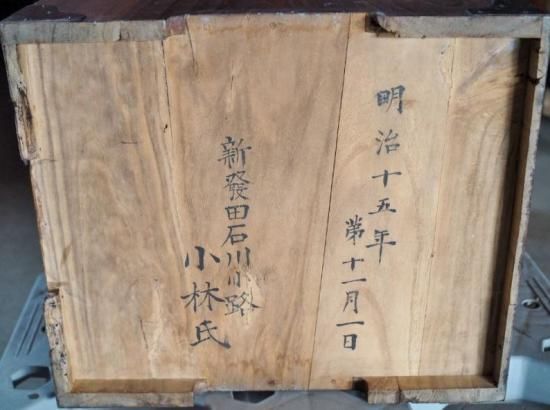 明治十五年
第十一月一日
新發田石川小路
小林氏